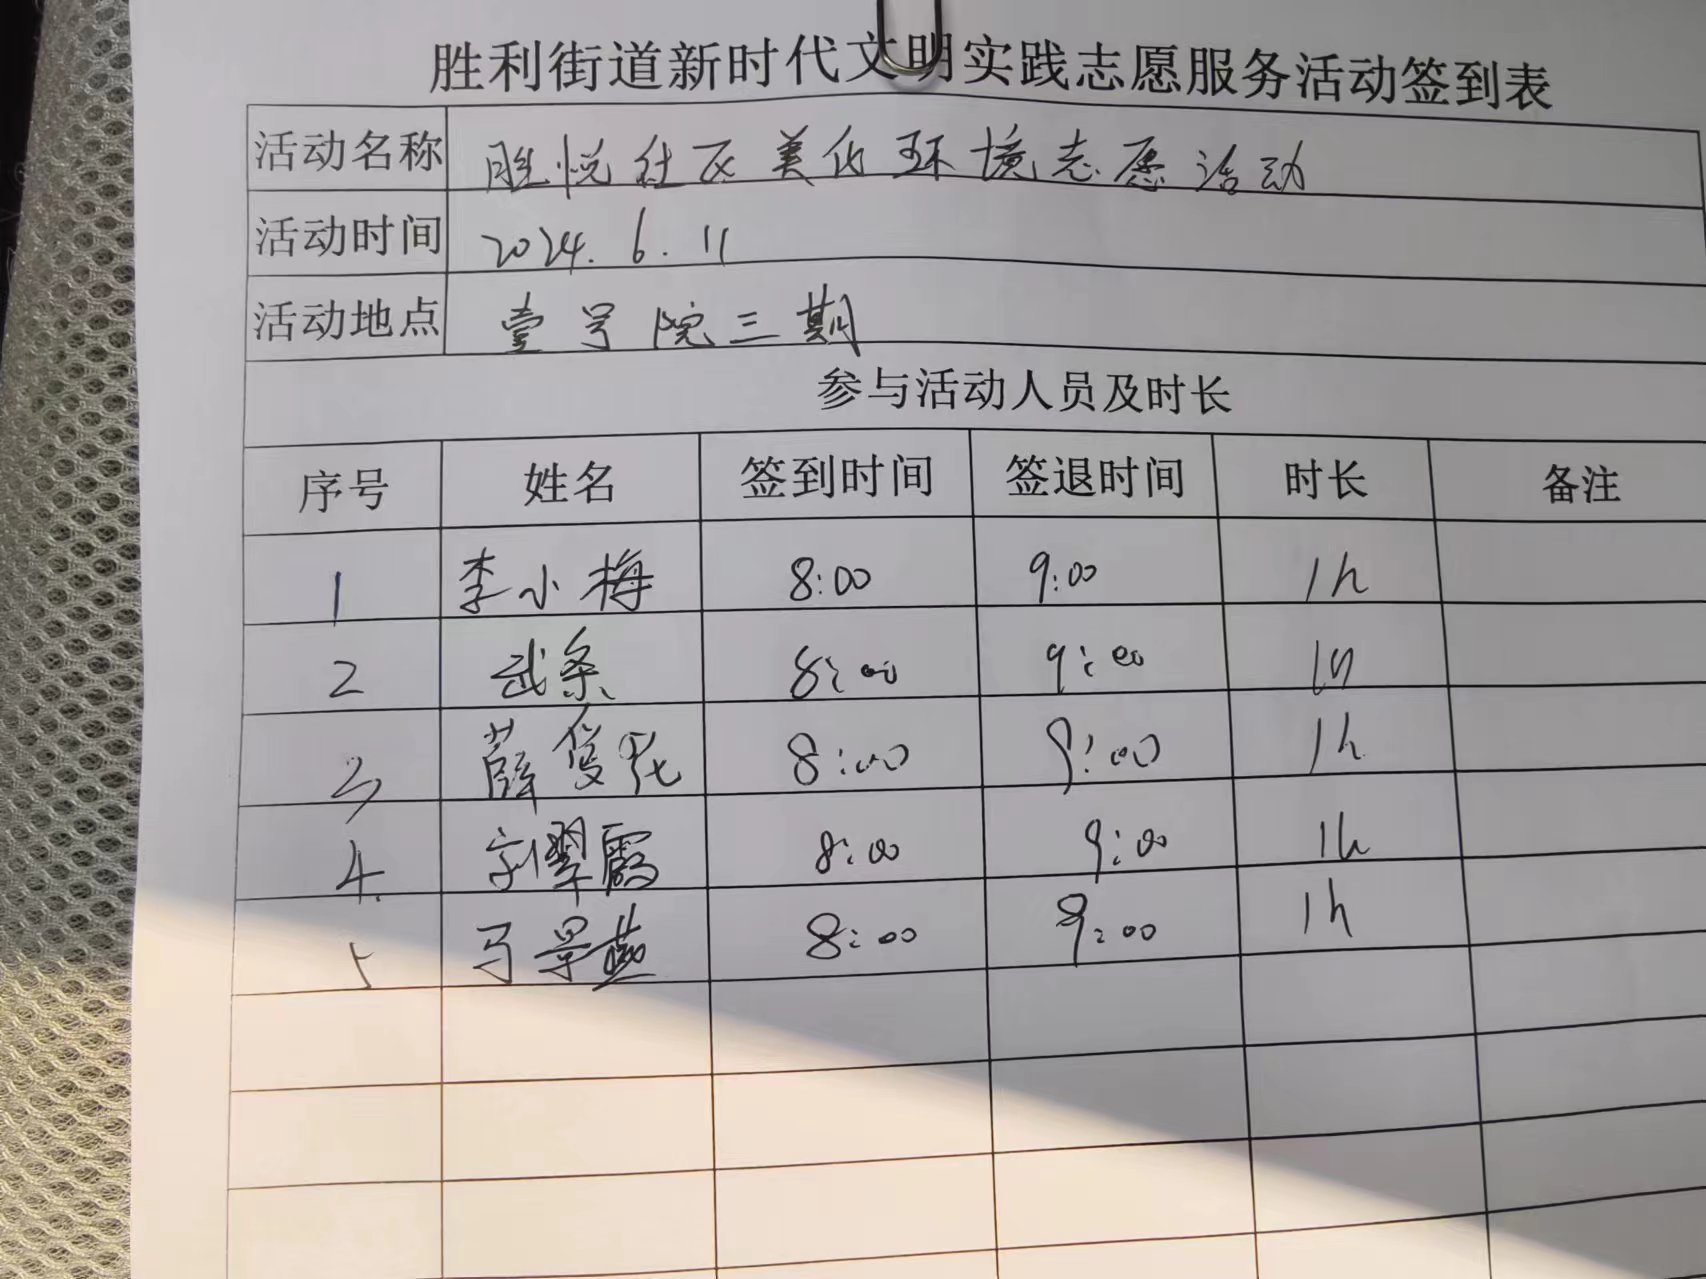 胜利街道新时代文明实践志愿服务活动签到表
活动名称 胜悦社区美化环境志愿活动
活动时间 2024.6.11
活动地点 壹号院三期
参与活动人员及时长
序号 姓名 签到时间 签退时间 时长 备注
1 李小梅 8:00 9:00 1h
2 武条 8:00 9:00 1h
3 薛 8:00 9:00 1h
4. 刘翠霞 8:00 9:00 1h
5 马景燕 8:00 9:00 1h